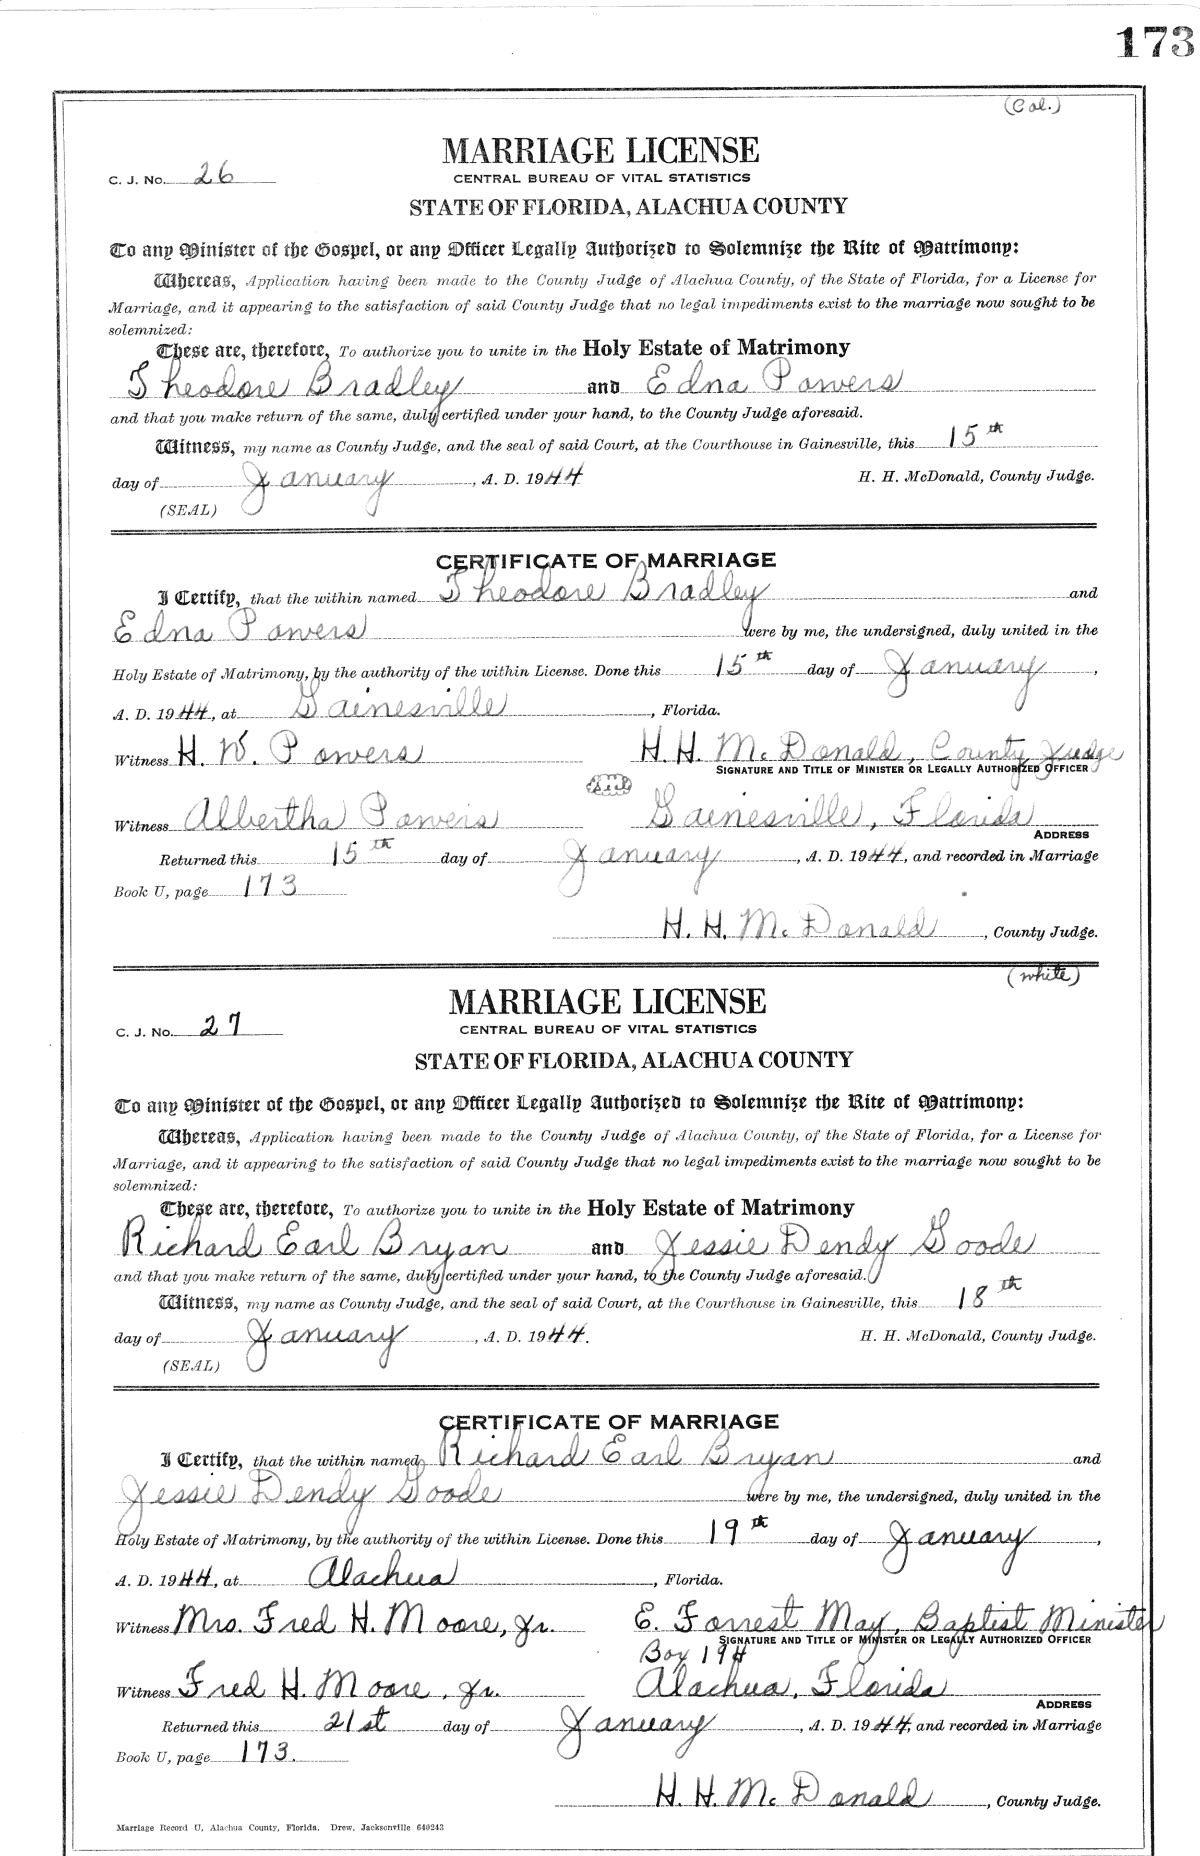 173
(Col.)
MARRIAGE LICENSE
C. J. No. 26
CENTRAL BUREAU OF VITAL STATISTICS
STATE OF FLORIDA, ALACHUA COUNTY
To any Minister of the Gospel, or any Officer Legally Authorized to Solemnize the Rite of Matrimony:
Whereas, Application having been made to the County Judge of Alachua County, of the State of Florida, for a License for
Marriage, and it appearing to the satisfaction of said County Judge that no legal impediments exist to the marriage now sought to be
solemnized:
These are, therefore, To authorize you to unite in the Holy Estate of Matrimony
Theodore Bradley and Edna Powers
and that you make return of the same, duly certified under your hand, to the County Judge aforesaid.
Witness, my name as County Judge, and the seal of said Court, at the Courthouse in Gainesville, this 15th
day of January, A. D. 1944 H. H. McDonald, County Judge.
(SEAL)
CERTIFICATE OF MARRIAGE
I Certify, that the within named Theodore Bradley and
Edna Powers were by me, the undersigned, duly united in the
Holy Estate of Matrimony, by the authority of the within License. Done this 15th day of January,
A. D. 1944, at Gainesville, Florida.
Witness H. W. Powers H. H. McDonald, County Judge
SIGNATURE AND TITLE OF MINISTER OR LEGALLY AUTHORIZED OFFICER
Witness Albertha Powers Gainesville, Florida
ADDRESS
Returned this 15th day of January, A. D. 1944, and recorded in Marriage
Book U, page 173
H. H. McDonald, County Judge.
(white)
MARRIAGE LICENSE
C. J. No. 27
CENTRAL BUREAU OF VITAL STATISTICS
STATE OF FLORIDA, ALACHUA COUNTY
To any Minister of the Gospel, or any Officer Legally Authorized to Solemnize the Rite of Matrimony:
Whereas, Application having been made to the County Judge of Alachua County, of the State of Florida, for a License for
Marriage, and it appearing to the satisfaction of said County Judge that no legal impediments exist to the marriage now sought to be
solemnized:
These are, therefore, To authorize you to unite in the Holy Estate of Matrimony
Richard Earl Bryan and Jessie Dendy Goode
and that you make return of the same, duly certified under your hand, to the County Judge aforesaid.
Witness, my name as County Judge, and the seal of said Court, at the Courthouse in Gainesville, this 18th
day of January, A. D. 1944. H. H. McDonald, County Judge.
(SEAL)
CERTIFICATE OF MARRIAGE
I Certify, that the within named Richard Earl Bryan and
Jessie Dendy Goode were by me, the undersigned, duly united in the
Holy Estate of Matrimony, by the authority of the within License. Done this 19th day of January,
A. D. 1944, at Alachua, Florida.
Witness Mrs. Fred H. Moore, Jr. E. Forrest May, Baptist Minister
SIGNATURE AND TITLE OF MINISTER OR LEGALLY AUTHORIZED OFFICER
Box 194
Witness Fred H. Moore, Jr. Alachua, Florida
ADDRESS
Returned this 21st day of January, A. D. 1944, and recorded in Marriage
Book U, page 173.
H. H. McDonald, County Judge.
Marriage Record U, Alachua County, Florida. Drew, Jacksonville 640243